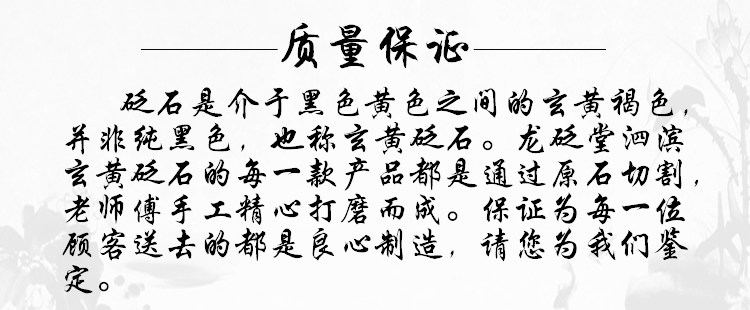 质量保证
砭石是介于黑色黄色之间的玄黄褐色，
并非纯黑色，也称玄黄砭石。龙砭堂泗滨
玄黄砭石的每一款产品都是通过原石切割，
老师傅手工精心打磨而成。保证为每一位
顾客送去的都是良心制造，请您为我们鉴
定。